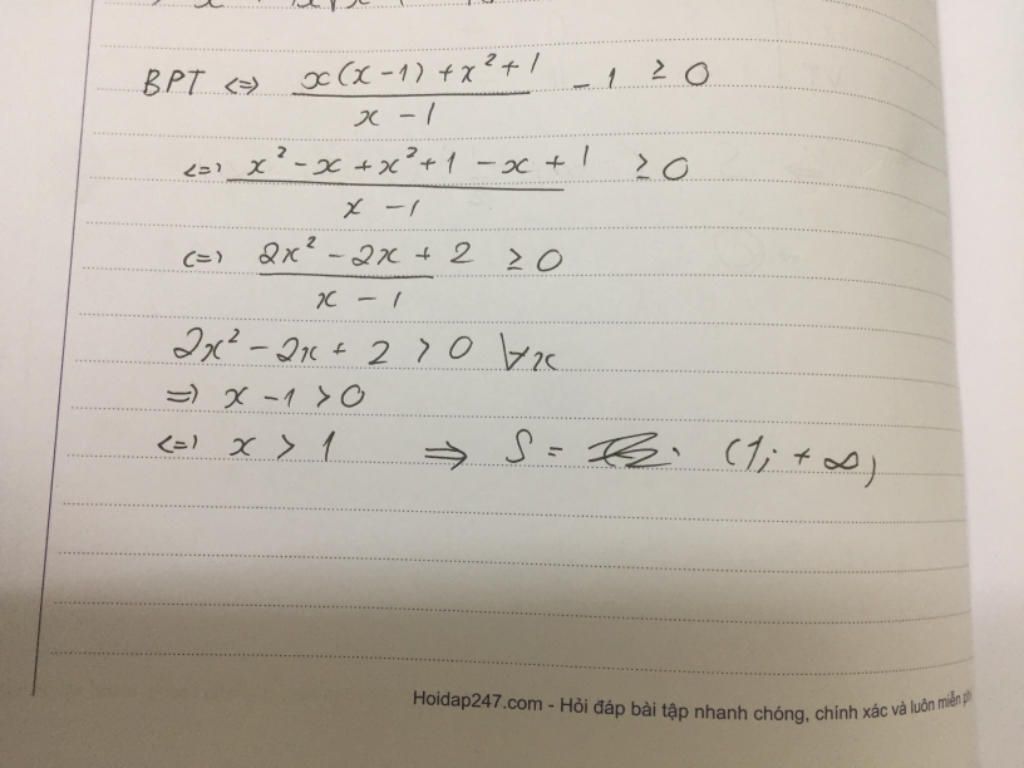 BPT <=> x(x-1) + x² + 1 / x - 1 - 1 ≥ 0
<=> x² - x + x² + 1 - x + 1 / x - 1 ≥ 0
<=> 2x² - 2x + 2 / x - 1 ≥ 0
2x² - 2x + 2 > 0 ∀x
=> x - 1 > 0
<=> x > 1 => S = (1; +∞)
Hoidap247.com - Hỏi đáp bài tập nhanh chóng, chính xác và luôn miễn